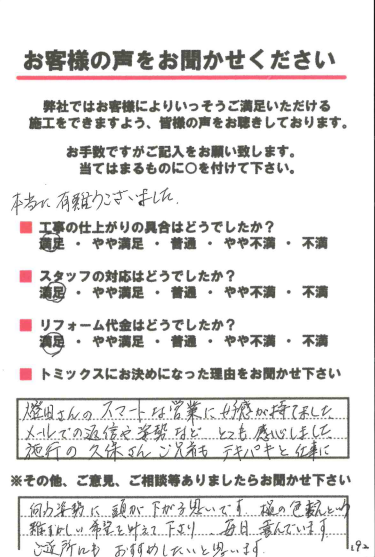 お客様の声をお聞かせください
弊社ではお客様によりいっそうご満足いただける
施工をできますよう、皆様の声をお聴きしております。
お手数ですがご記入をお願い致します。
当てはまるものに○を付けて下さい。
本当に有難うございました。
■ 工事の仕上がりの具合はどうでしたか？
満足 ・ やや満足 ・ 普通 ・ やや不満 ・ 不満
■ スタッフの対応はどうでしたか？
満足 ・ やや満足 ・ 普通 ・ やや不満 ・ 不満
■ リフォーム代金はどうでしたか？
満足 ・ やや満足 ・ 普通 ・ やや不満 ・ 不満
■ トミックスにお決めになった理由をお聞かせ下さい
さんのスマートな営業に好感が持てました
メールでの返信や姿勢など とても感心しました
施行の久保さん ご兄弟も テキパキと仕事に
※その他、ご意見、ご相談等ありましたらお聞かせ下さい
向う姿勢に 頭が下がる思いです
難しい希望を叶えて下さり 毎日 喜んでいます
ご近所にも おすすめしたいと思います。
192